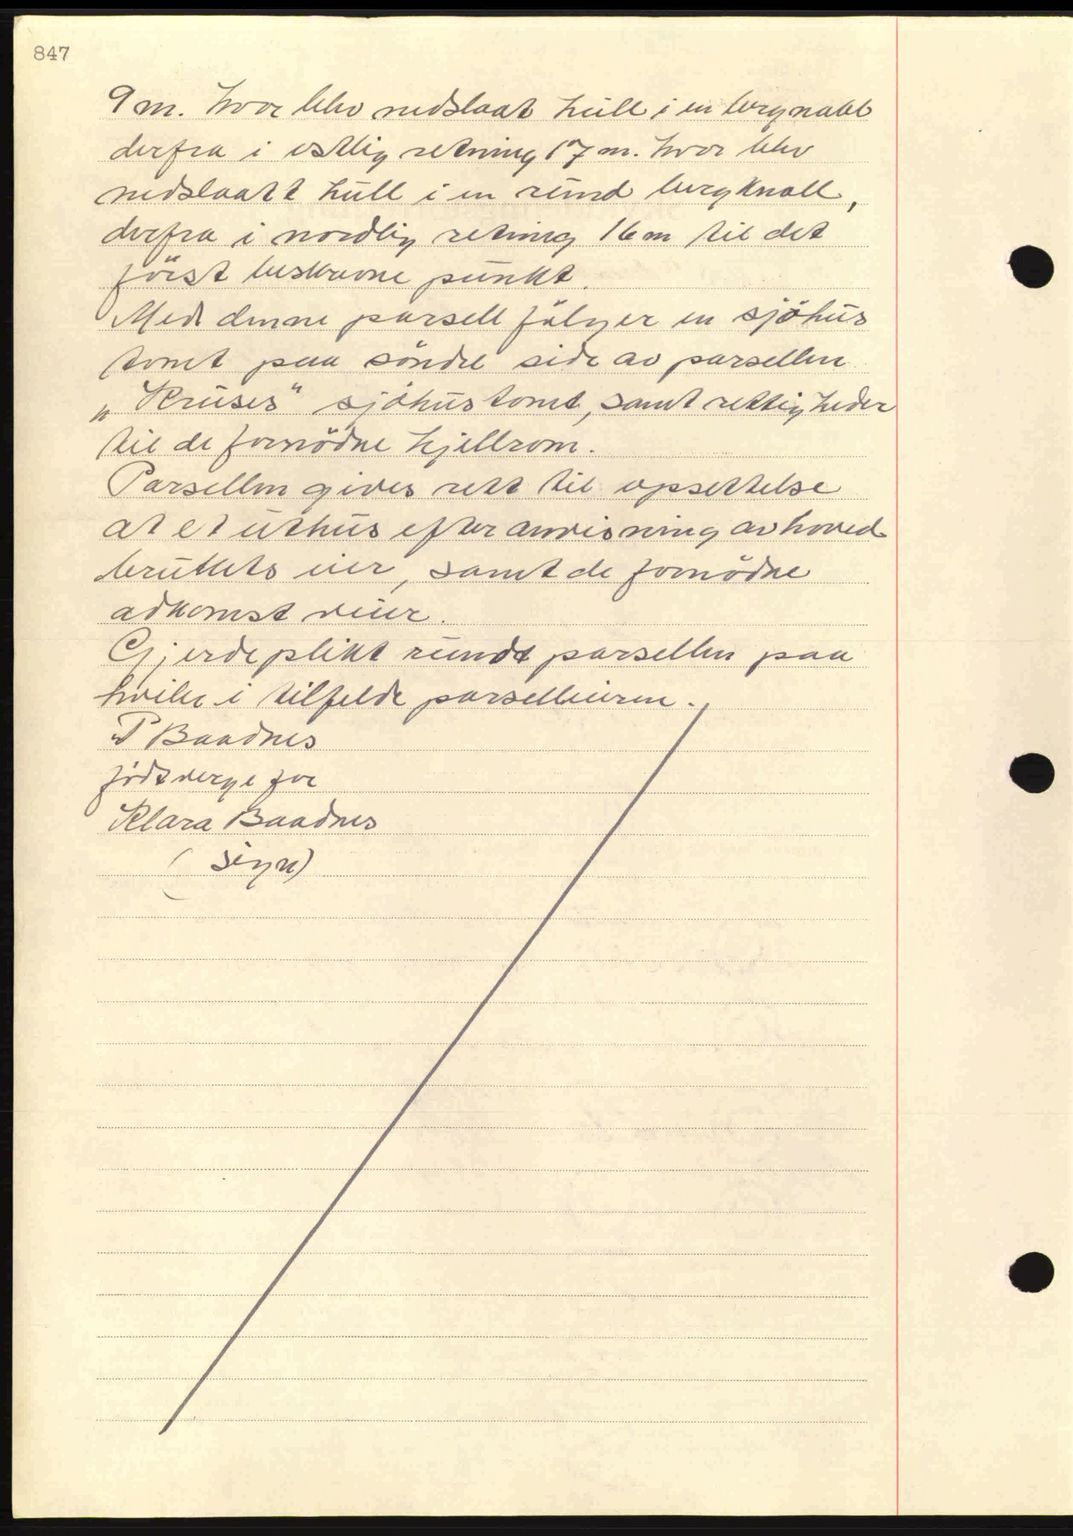 847
9 m. hvor blev nedslaat hull i en bergnabb
derfra i østlig retning 17 m. hvor blev
nedslaatt hull i en rund bergknall,
derfra i nordlig retning 16 m til det
först beskrevne punkt.
Med denne parsell fölger en sjöhus
tomt paa söndre side av parsellen
„Kruses" sjöhustomt, samt rettigheder
til de fornödne kjellrom.
Parsellen gives rett til opsettelse
at et uthus efter anvisning av hoved
brukets eier, samt de fornödne
adkomst veier.
Gjerdeplikt rundt parsellen paa
hviler i tilfelde parselleieren.
P Baadnes
född verge for
Klara Baadnes
(sign)